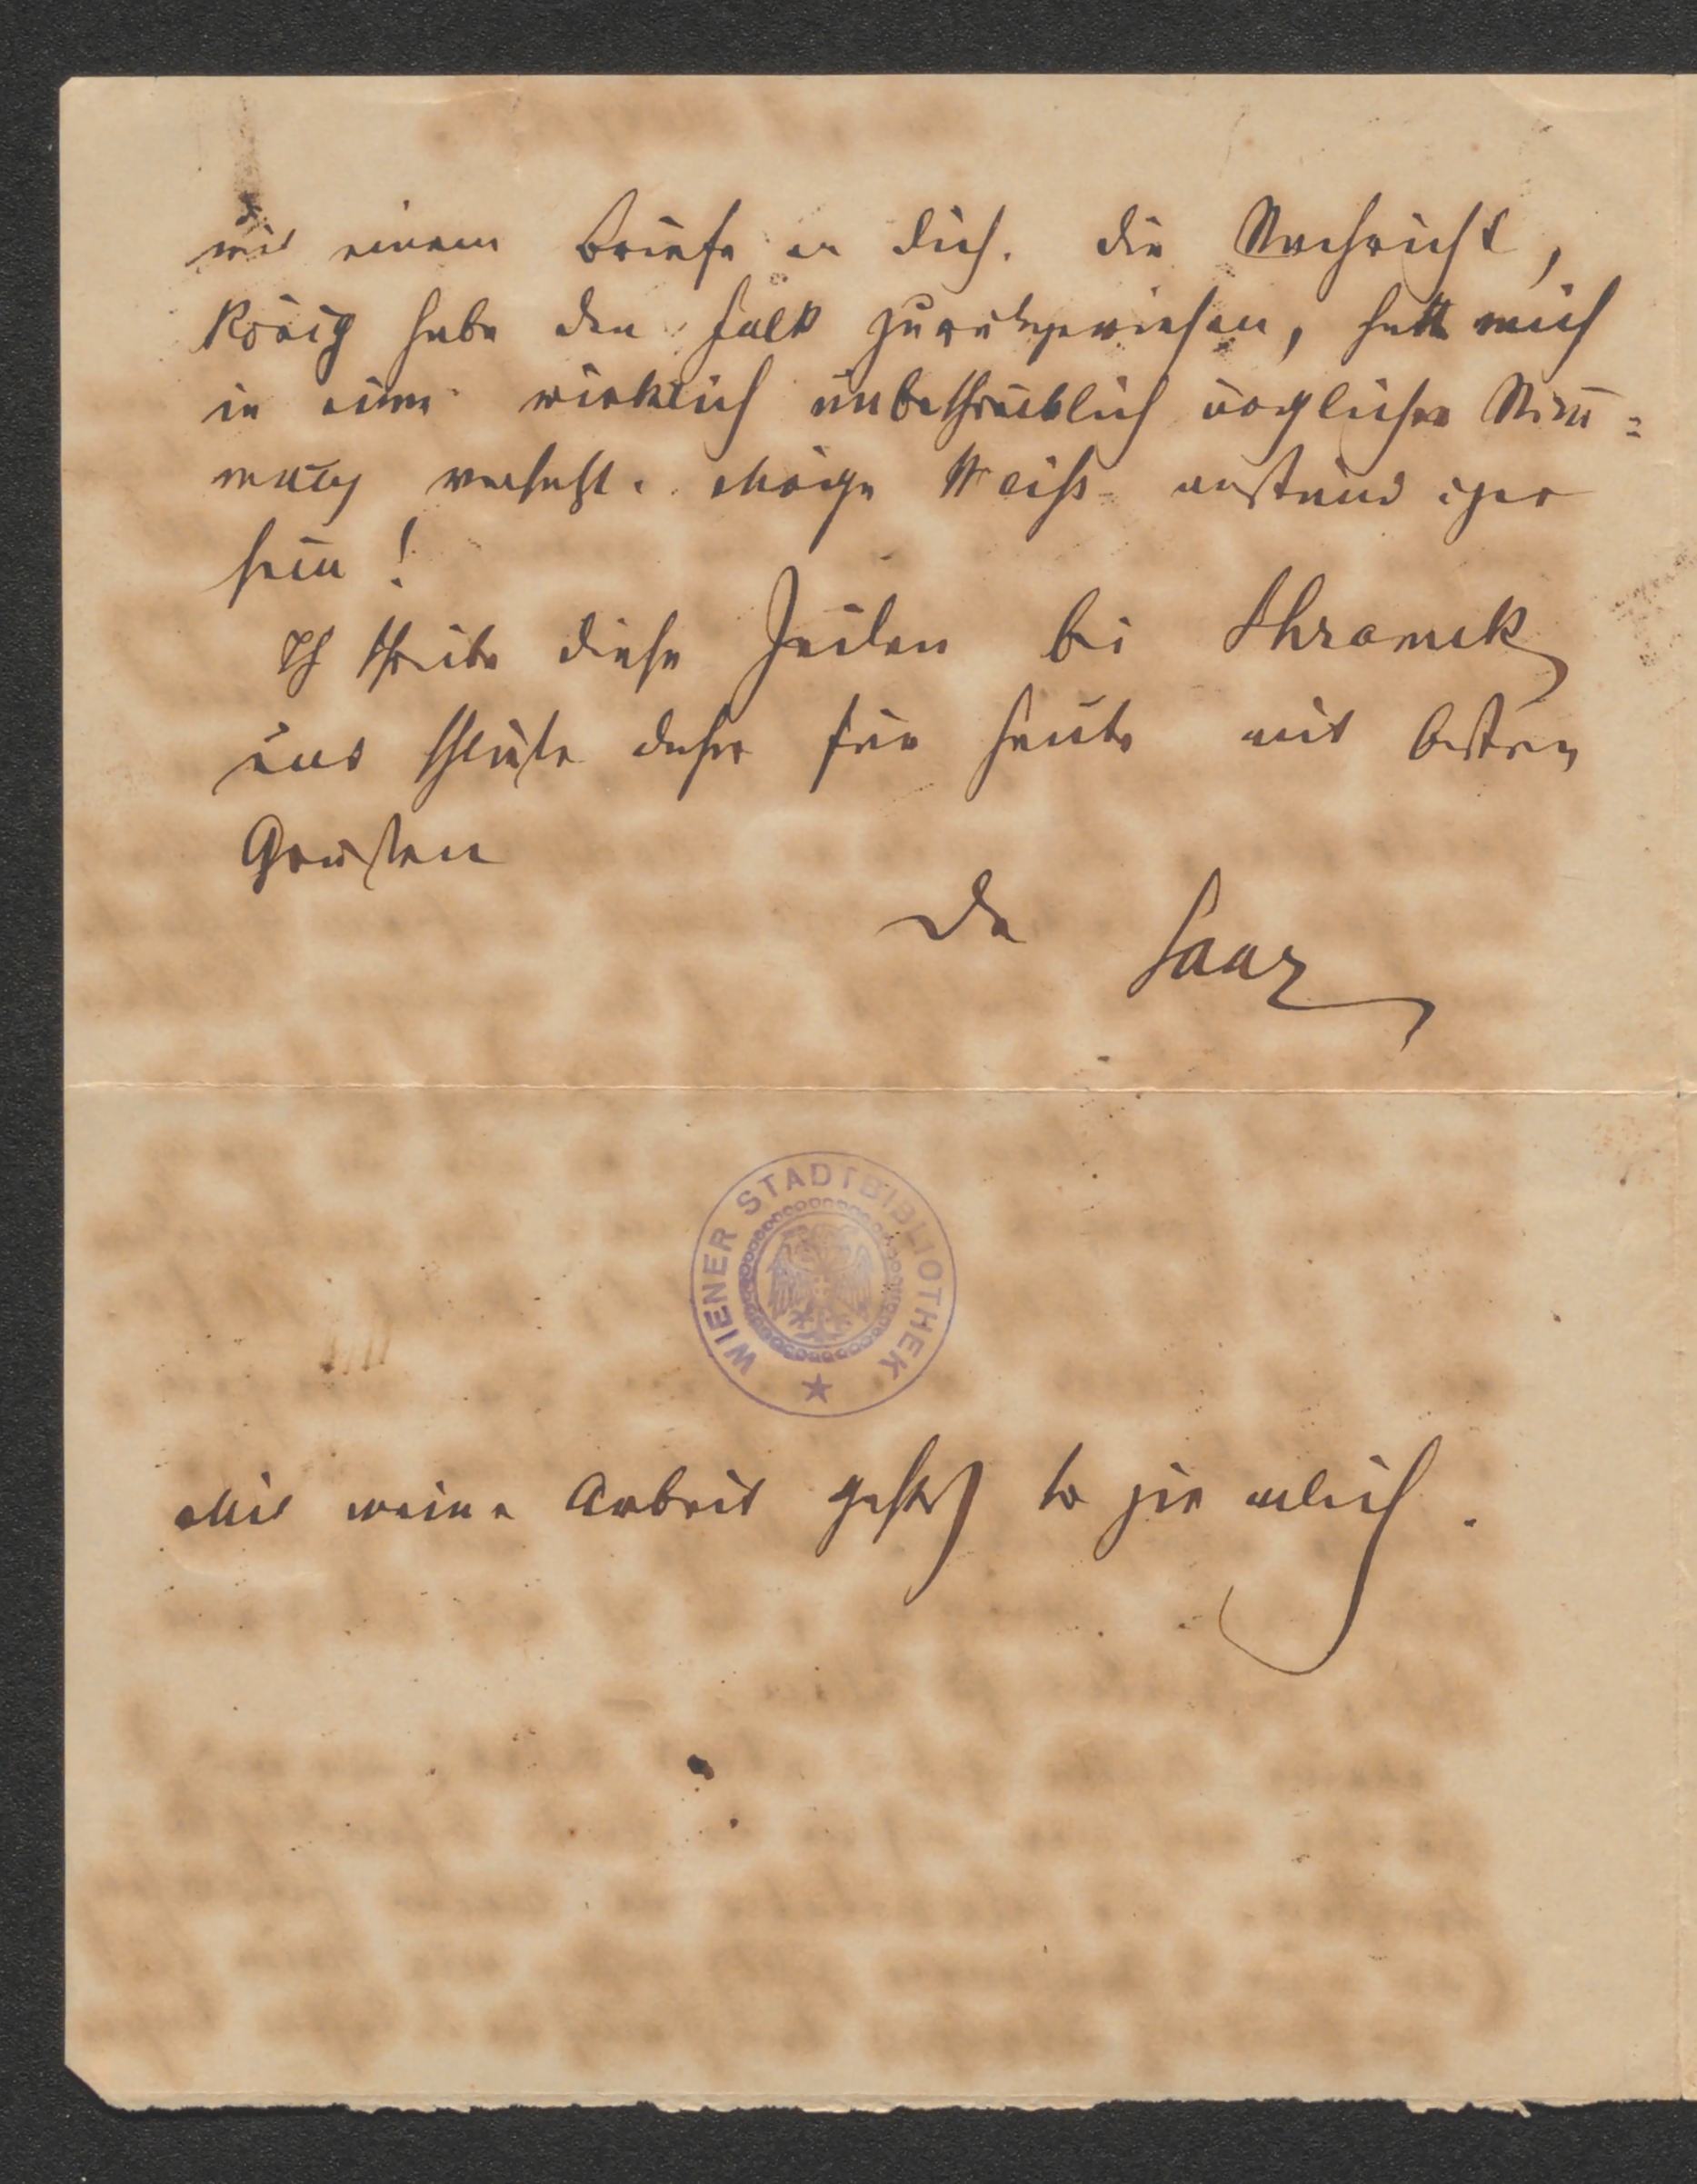 mit einem Briefe an dich. Die Nachricht,
König habe den Falk zurückgewiesen, hatt mich
in eine wirklich unbeschreiblich Stim=
mung versetzt. Möge Weiß anständiger
sein!
Ich schreibe diese Zeilen bei Shramek
und schließe daher für heute mit besten
Grüßen
Dein Saar
WIENER STADTBIBLIOTHEK
Mit meiner Arbeit geht es so ziemlich.